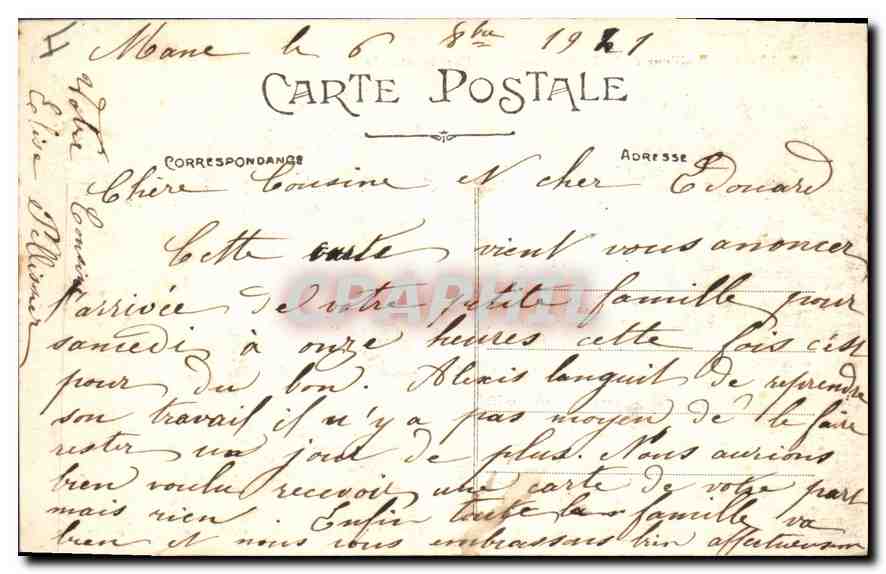 Mane le 6 8bre 1921
CARTE POSTALE
CORRESPONDANCE ADRESSE
Chère Cousine et cher Edouard
Cette carte vient vous anoncer
l'arrivée de votre petite famille pour
samedi à onze heures cette fois c'est
pour du bon. Alexis languit de reprendre
son travail il n'y a pas moyen de le faire
rester un jour de plus. Nous aurions
bien voulu recevoir une carte de votre part
mais rien. Enfin toute la famille va
bien et nous vous embrassons bien affectueusem
Votre Cousine
Elise Pellissier
CPAPHIL